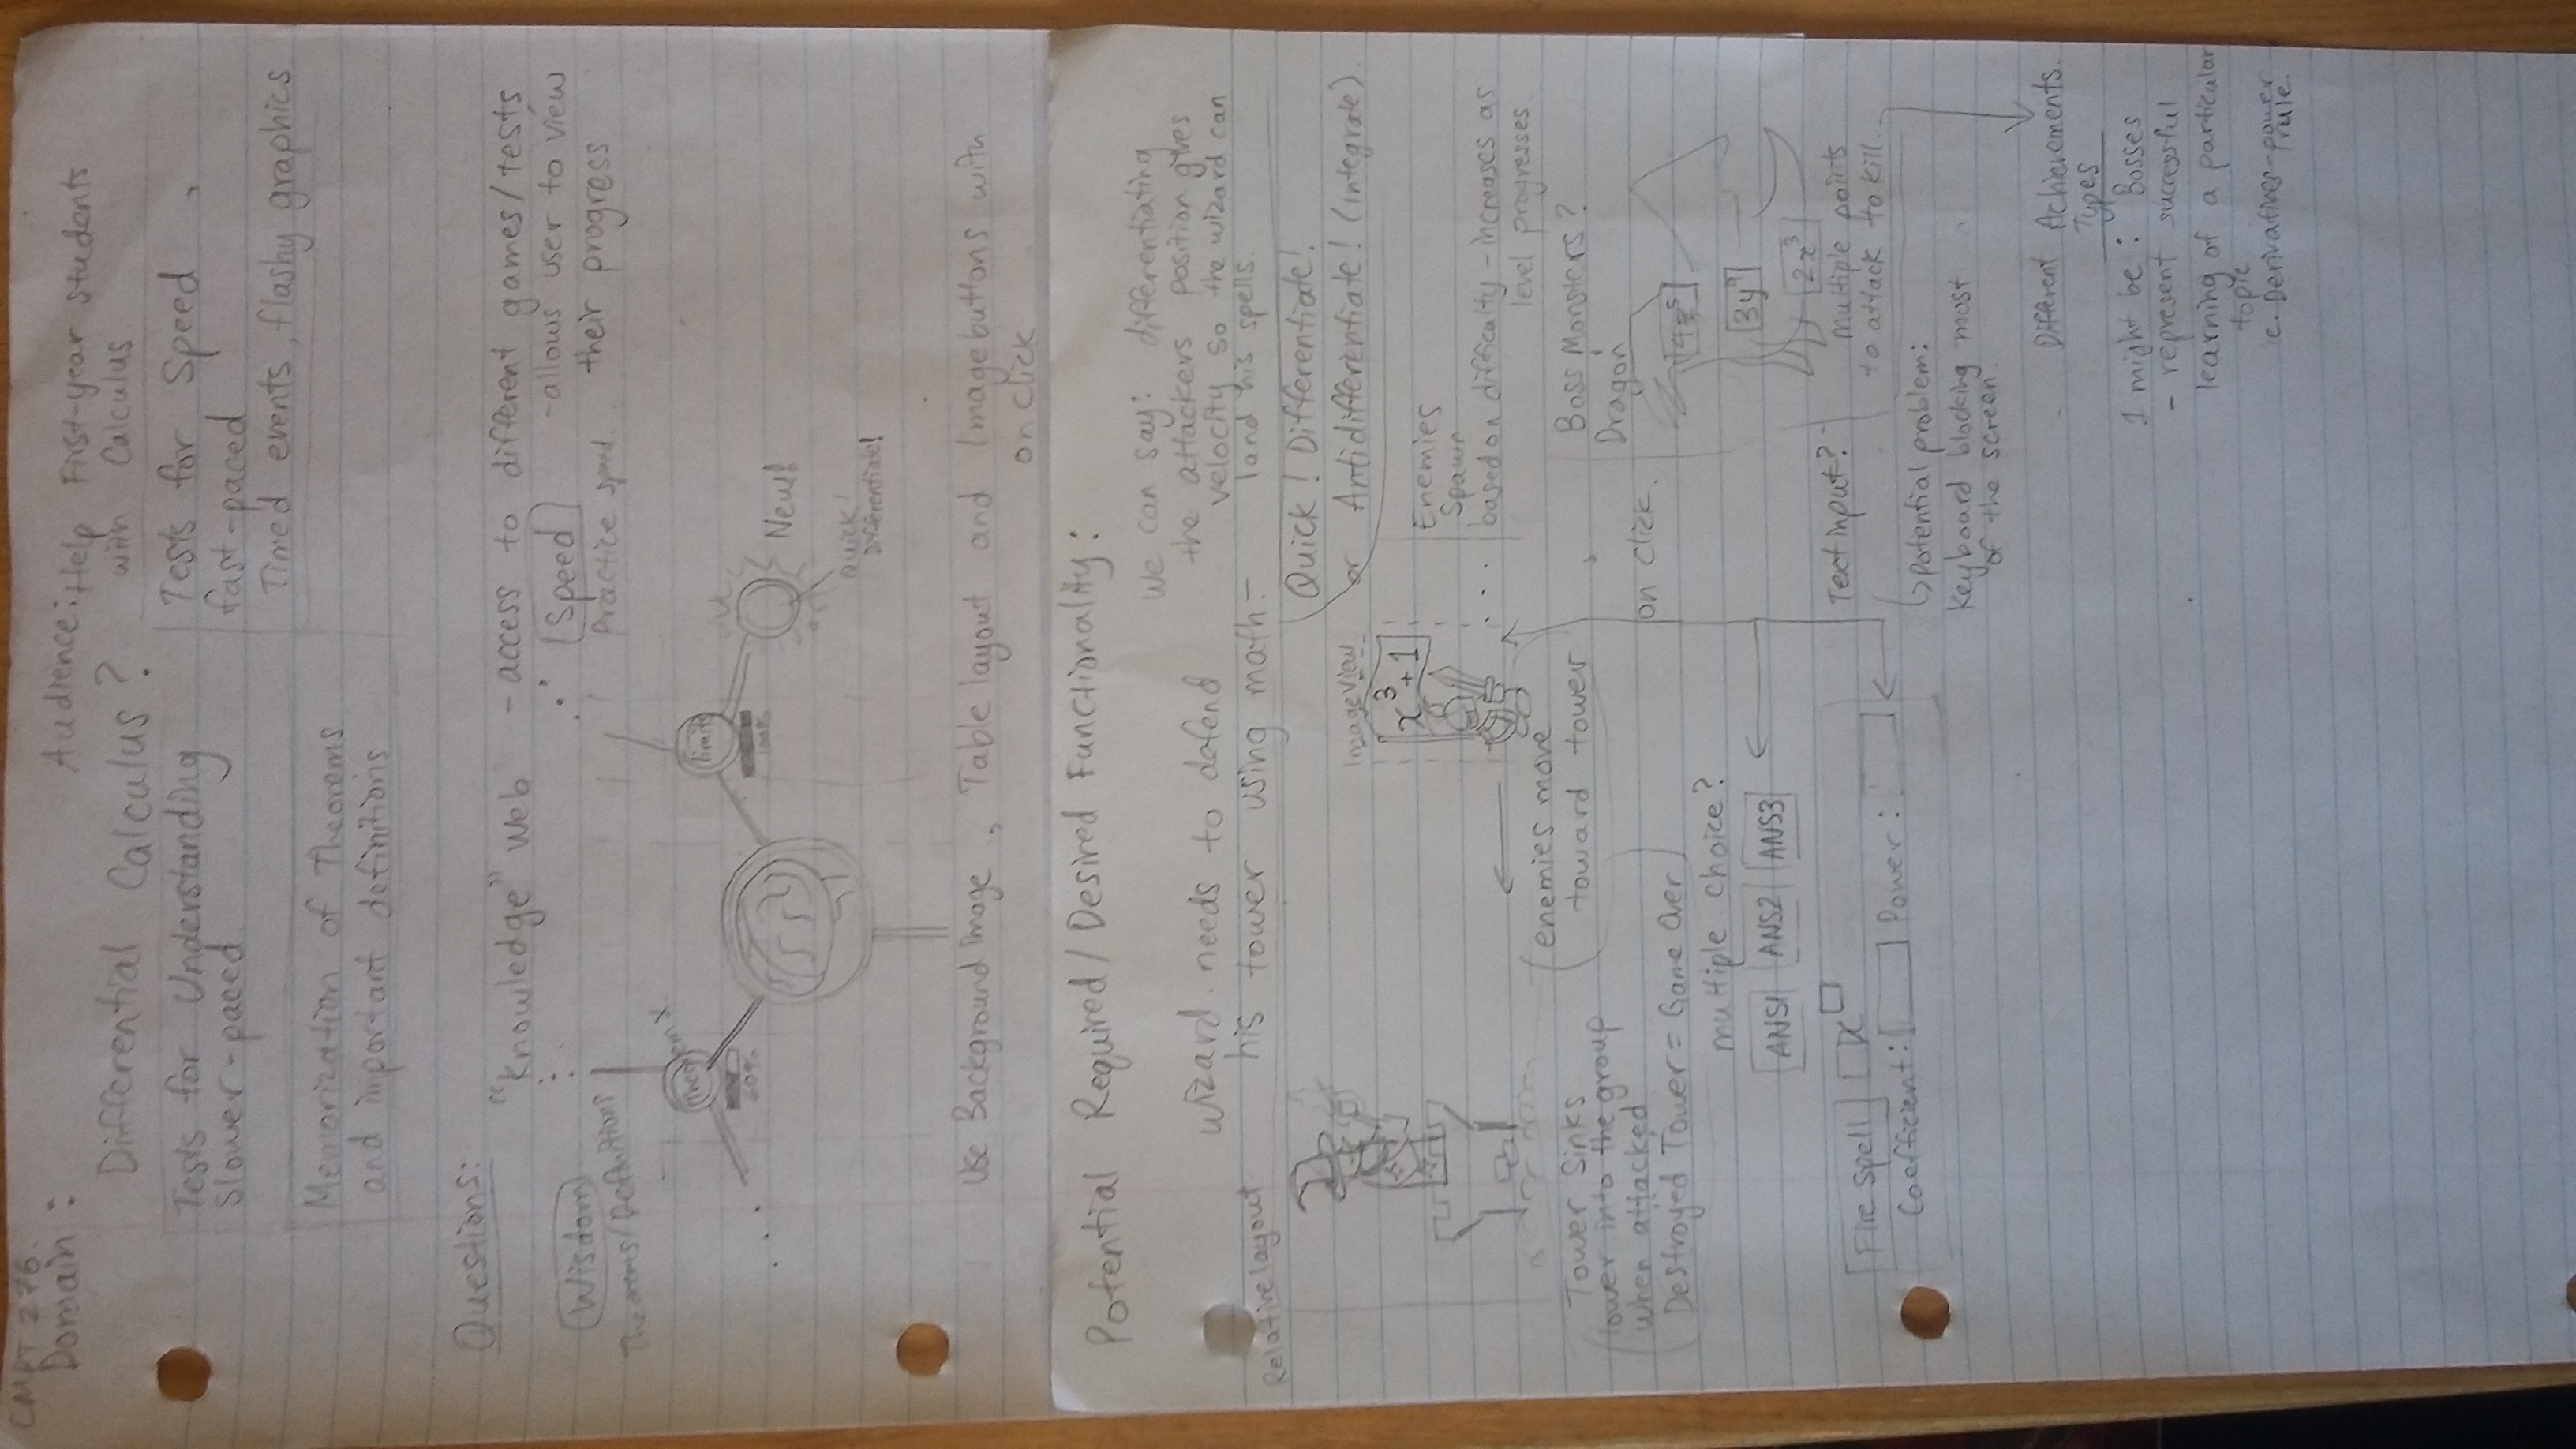 CMPT 276.
Domain :
Audience: Help First-year students
with Calculus
Differential Calculus?
Tests for Understanding
Slower-paced
Tests for Speed ,
fast-paced
Timed events, flashy graphics
Memorization of Theorems
and important definitions
Questions:
"Knowledge" Web - access to different games/tests
- allows user to view
their progress
Wisdom
Theorems/Definitions
Speed
Practice speed
Theorem X
60%
limits
100%
New!
Quick!
Differentiate!
Use Background image , Table layout and Imagebuttons with
on click
Potential Required/Desired Functionality:
wizard needs to defend
his tower using math -
we can say: differentiating
the attackers position gives
velocity so the wizard can
land his spells.
Relative layout
Quick! Differentiate!
or Antidifferentiate! (integrate)
ImageView
x³+1
Enemies
Spawn
based on difficulty - increases as
level progresses
enemies move
toward tower
Tower Sinks
lower into the group
when attacked
Destroyed Tower = Game Over
on click.
Boss Monsters?
Dragon
3y⁹
2x³
multiple points
to attack to kill.
multiple choice?
ANS1 ANS2 ANS3
Text input?
Fire Spell x
Coefficient: Power:
potential problem:
Keyboard blocking most
of the screen.
Different Achievements.
Types
1 might be : Bosses
- represent successful
learning of a particular
topic
ie. Derivatives - power
rule.